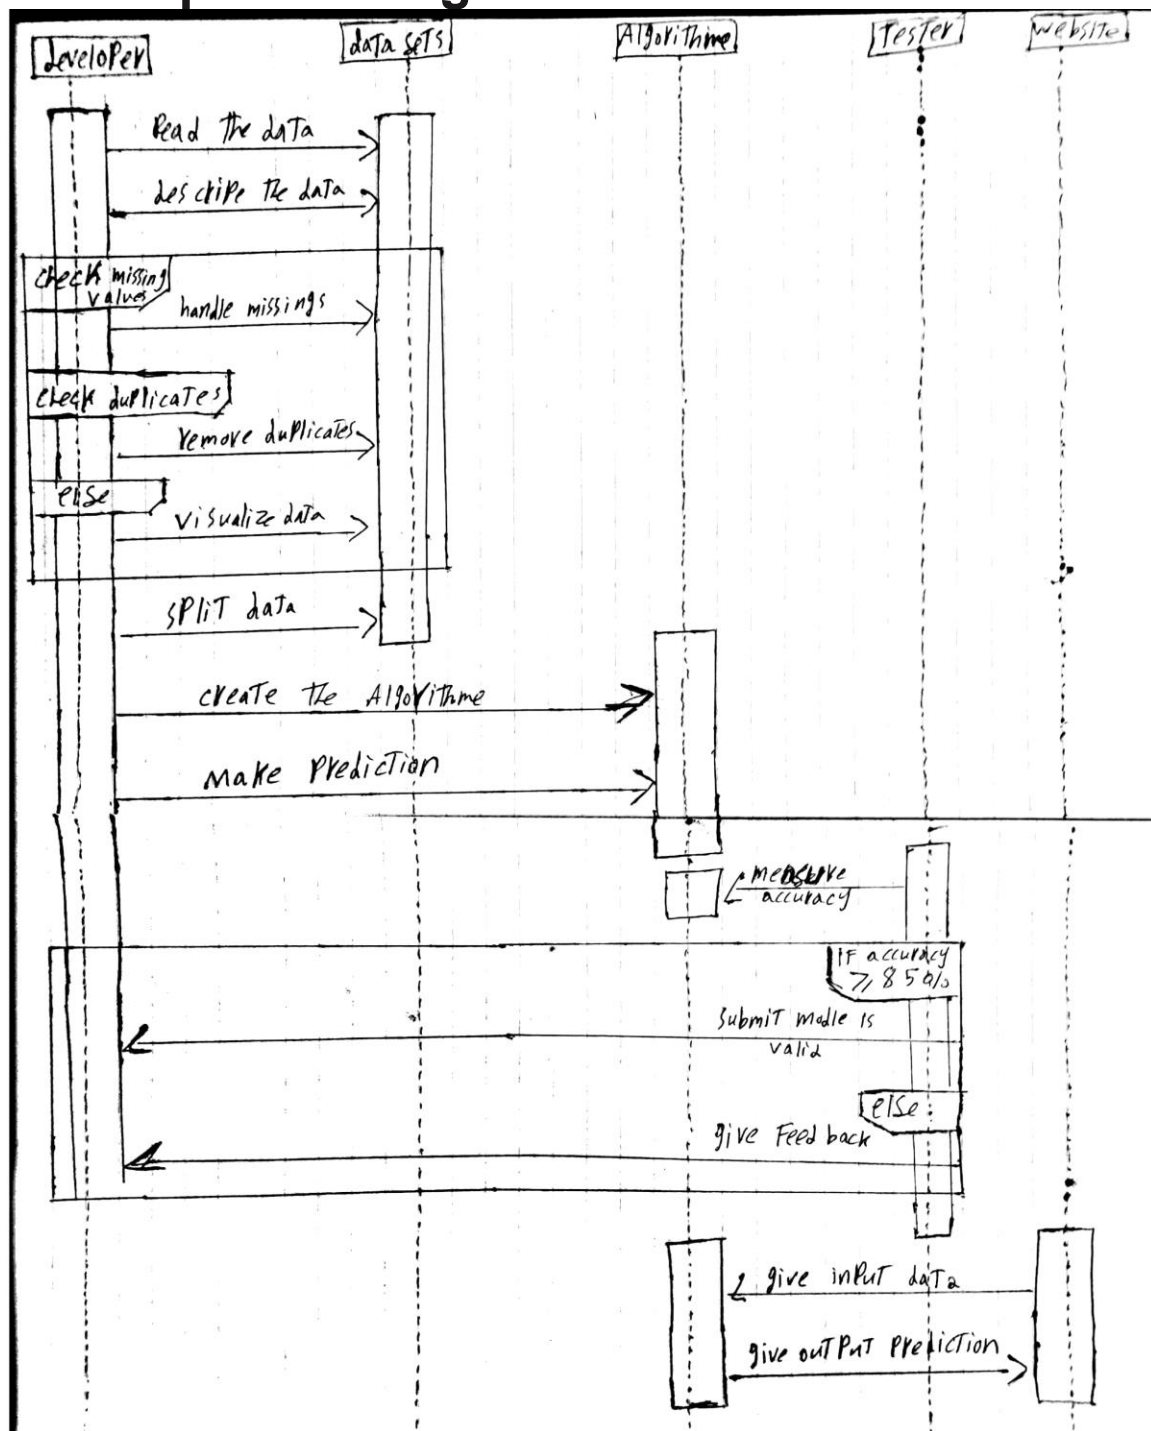 developer
data sets
Algorithme
Tester
website
Read the data
descripe the data
check missing
values
handle missings
check duplicates
remove duplicates
else
visualize data
split data
create the Algorithme
make prediction
measure
accuracy
if accuracy
≥ 85%
submit modle is
valid
else
give Feed back
give input data
give output prediction